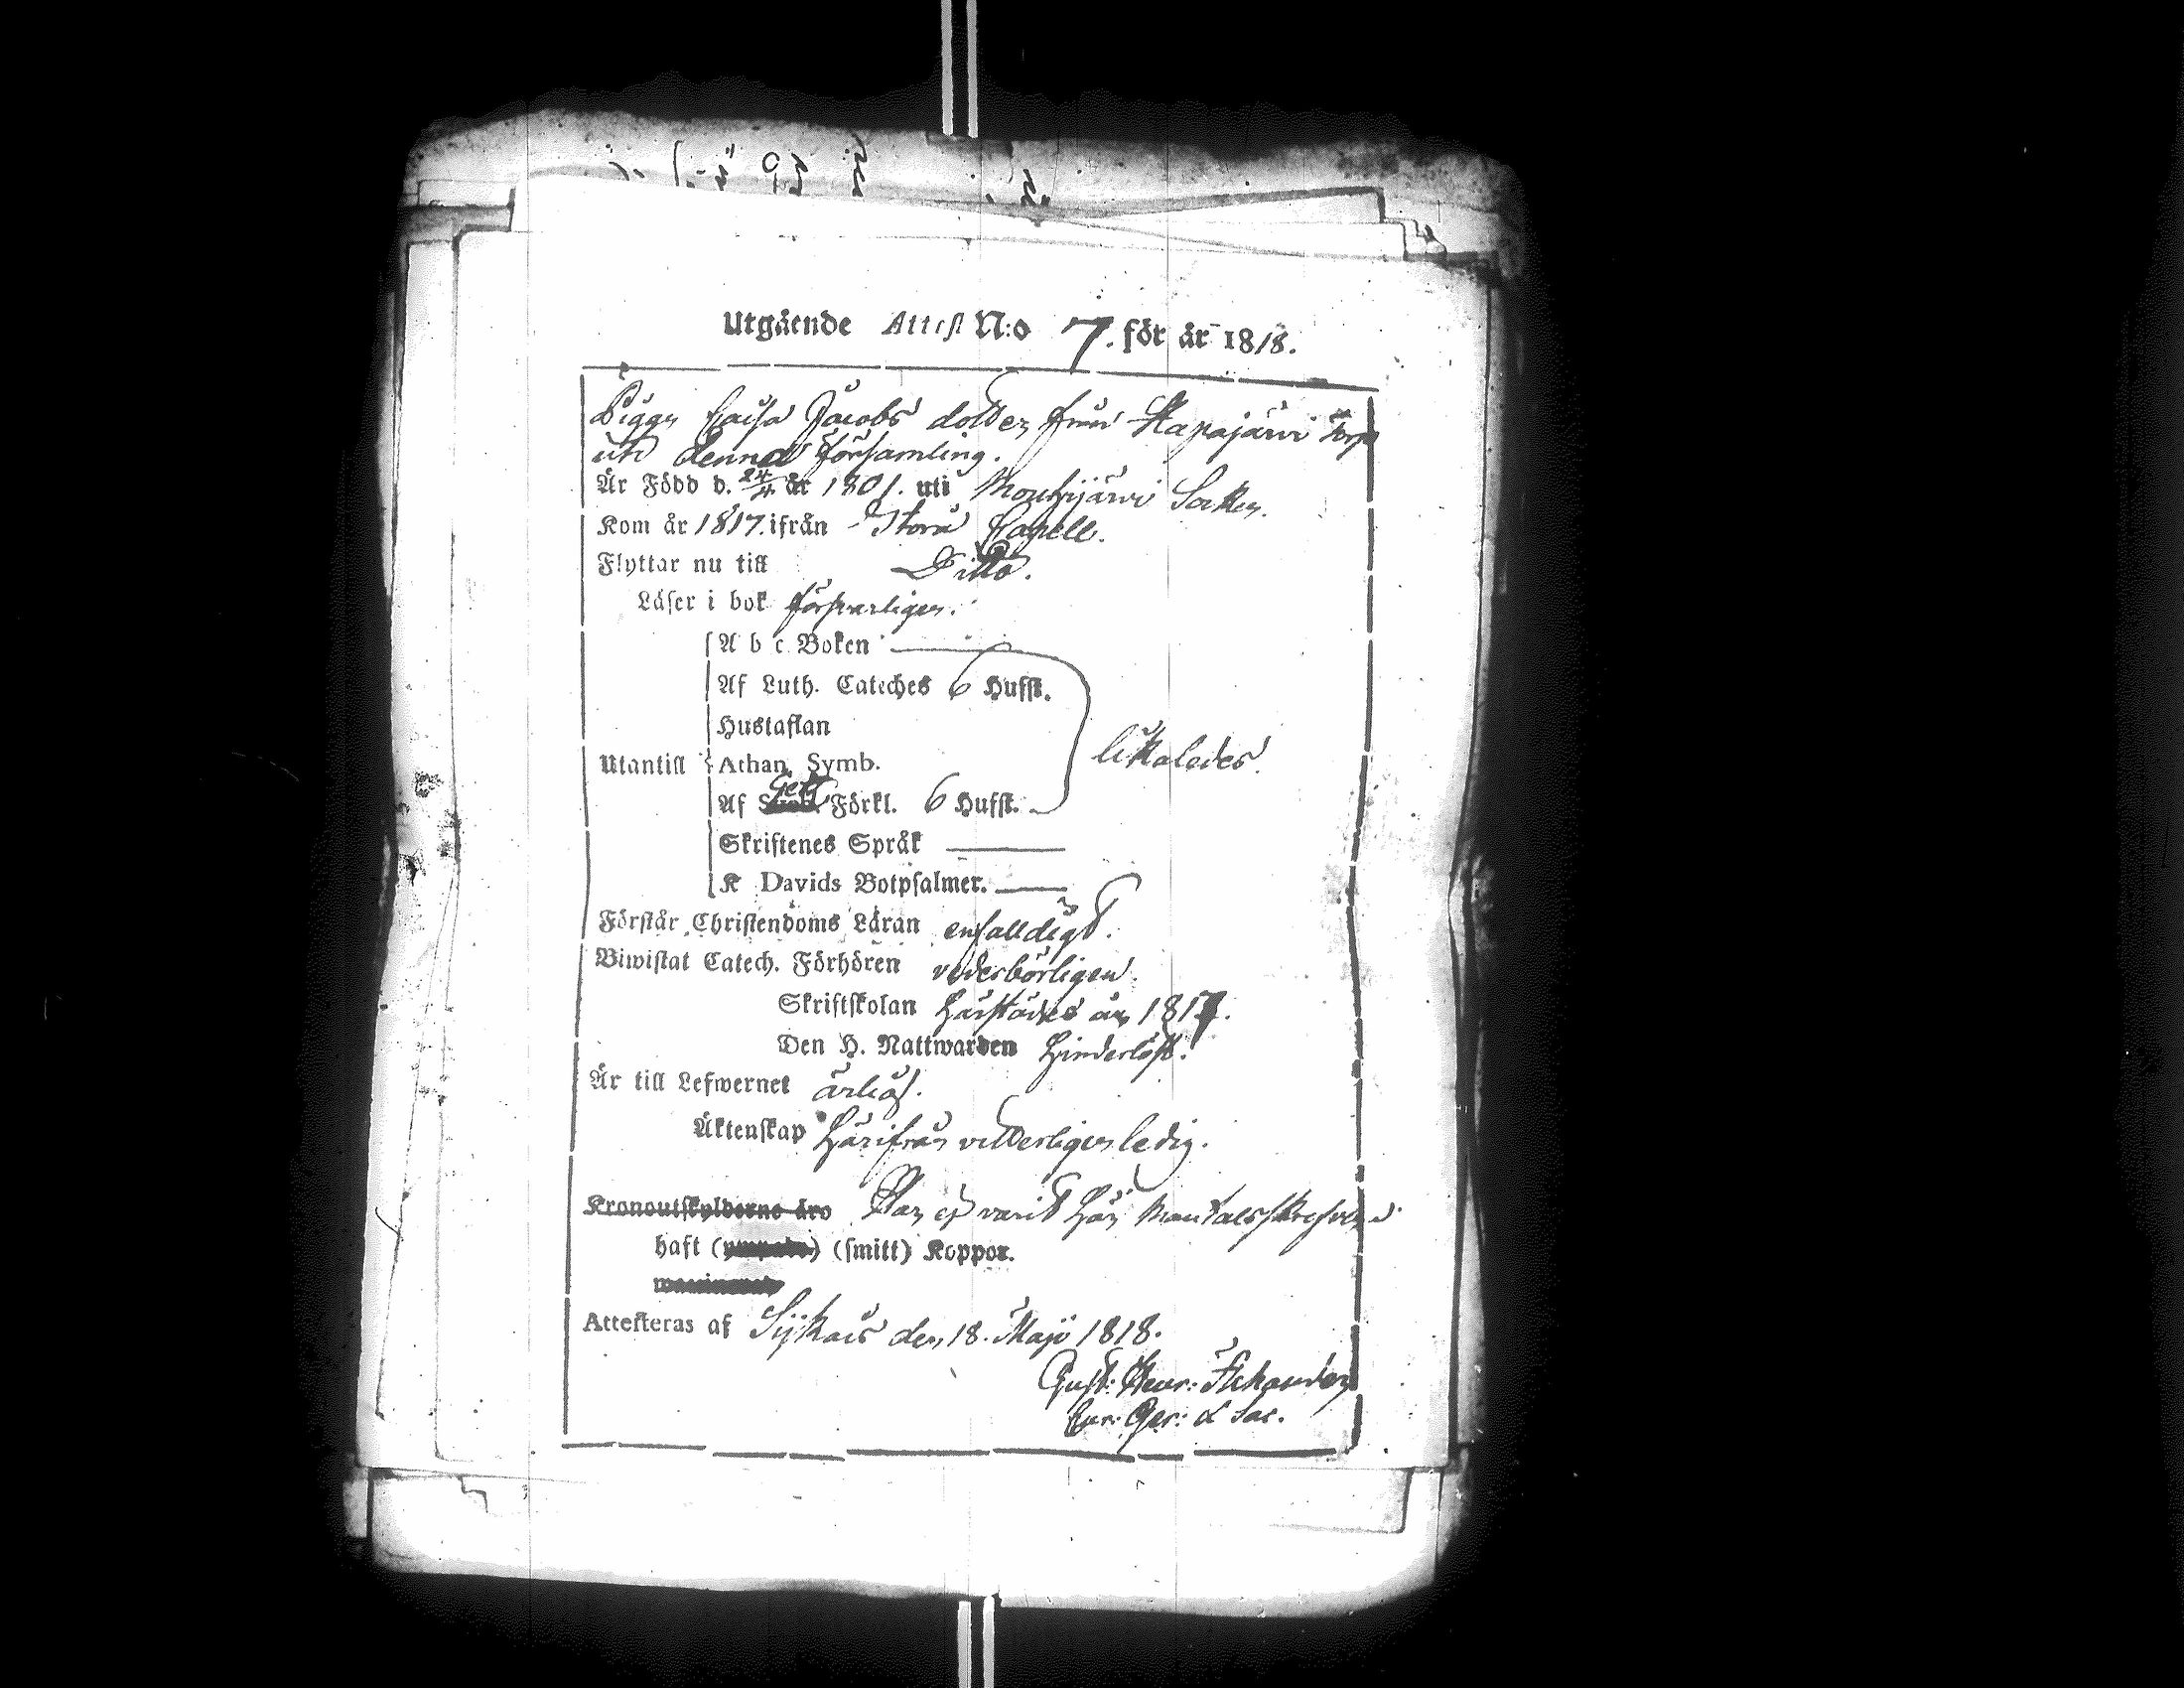 Utgående Attest N:o 7. för år 1818.
Pigan Caisa Jacobs dotter från Haapajärvi torp
uti denna församling.
Är Född d. 24/4 år 1801. uti Mouhijärvi Socken.
Kom år 1817. ifrån Stora Capell.
Flyttar nu till Ditto.
Läser i bok försvarligen.
A b c Boken
Af Luth. Cateches 6 Hufst.
Hustaflan
likaledes.
Utantill Athan. Symb.
Af Förkl. 6 Hufst.
Skriftenes Språk
K Davids Botpsalmer.
Förstår Christendoms Läran enfalldigt.
Biwistat Catech. Förhören vederbörligen.
Skriftskolan härstädes år 1817.
Den H. Nattwarden hinderlöst.
Är till Lefwernet ärlig.
Äktenskap härifrån vitterligen ledig.
Kronoutskylderne äro Har ej varit här Mantalsskrefven
haft (smitt) Koppor.
Attesteras af den 18. Maji 1818.
Gust: Henr: